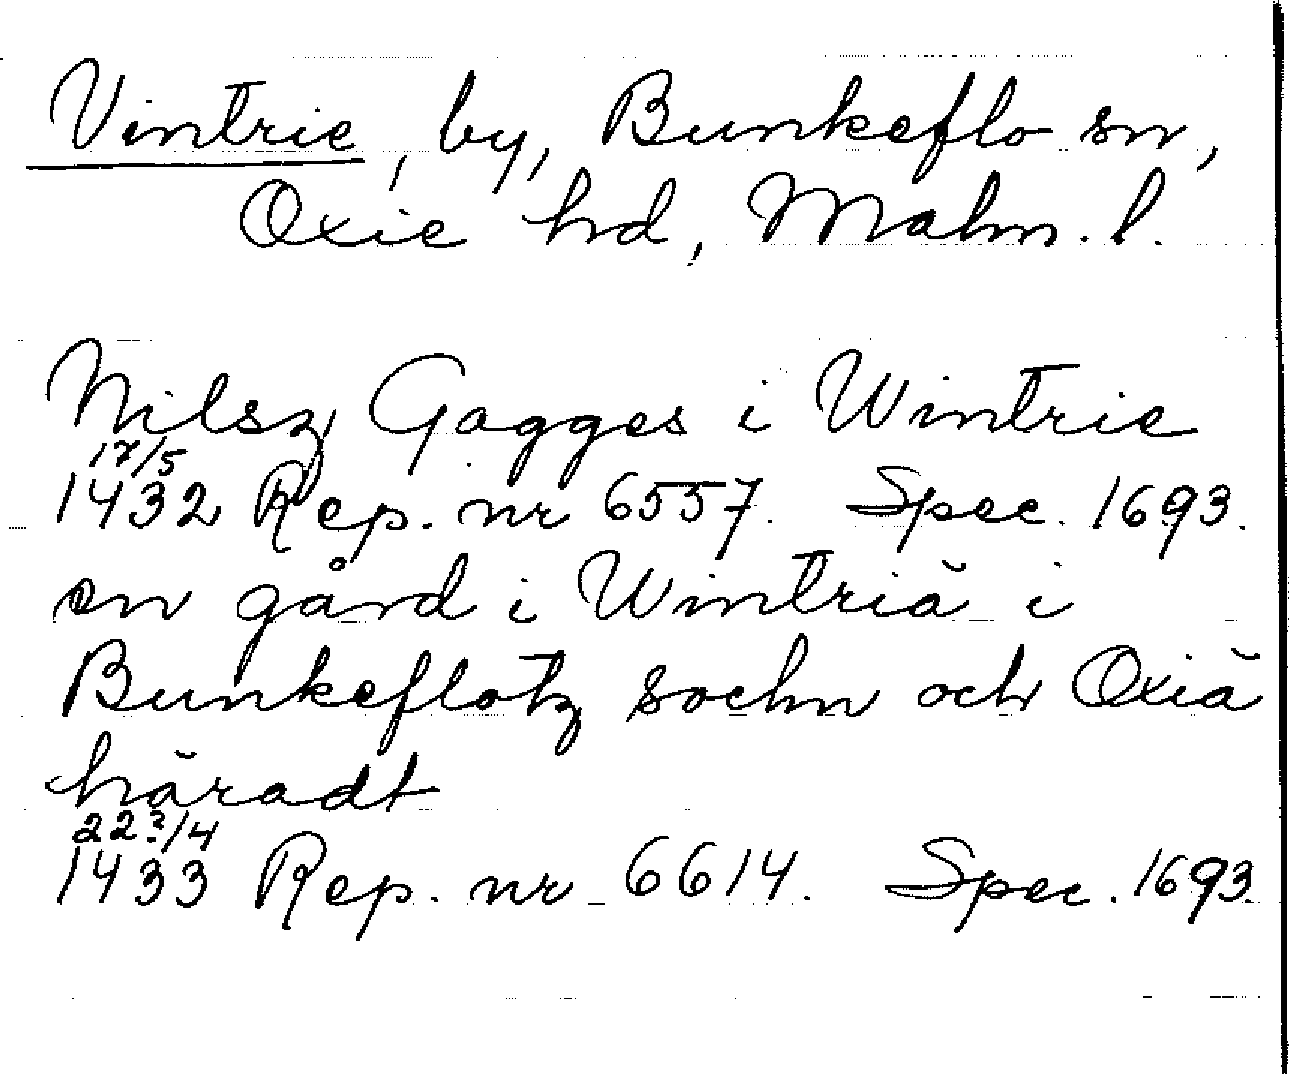 Vintrie, by, Bunkeflo sn,
Oxie hd, Malm. l.
Nilsz Gagges i Wintrie
17/5
1432 Rep. nr 6557. Spec. 1693.
en gård i Wintriä i
Bunkeflotz sochn och Oxiä
häradt
22?/4
1433 Rep. nr 6614. Spec. 1693.